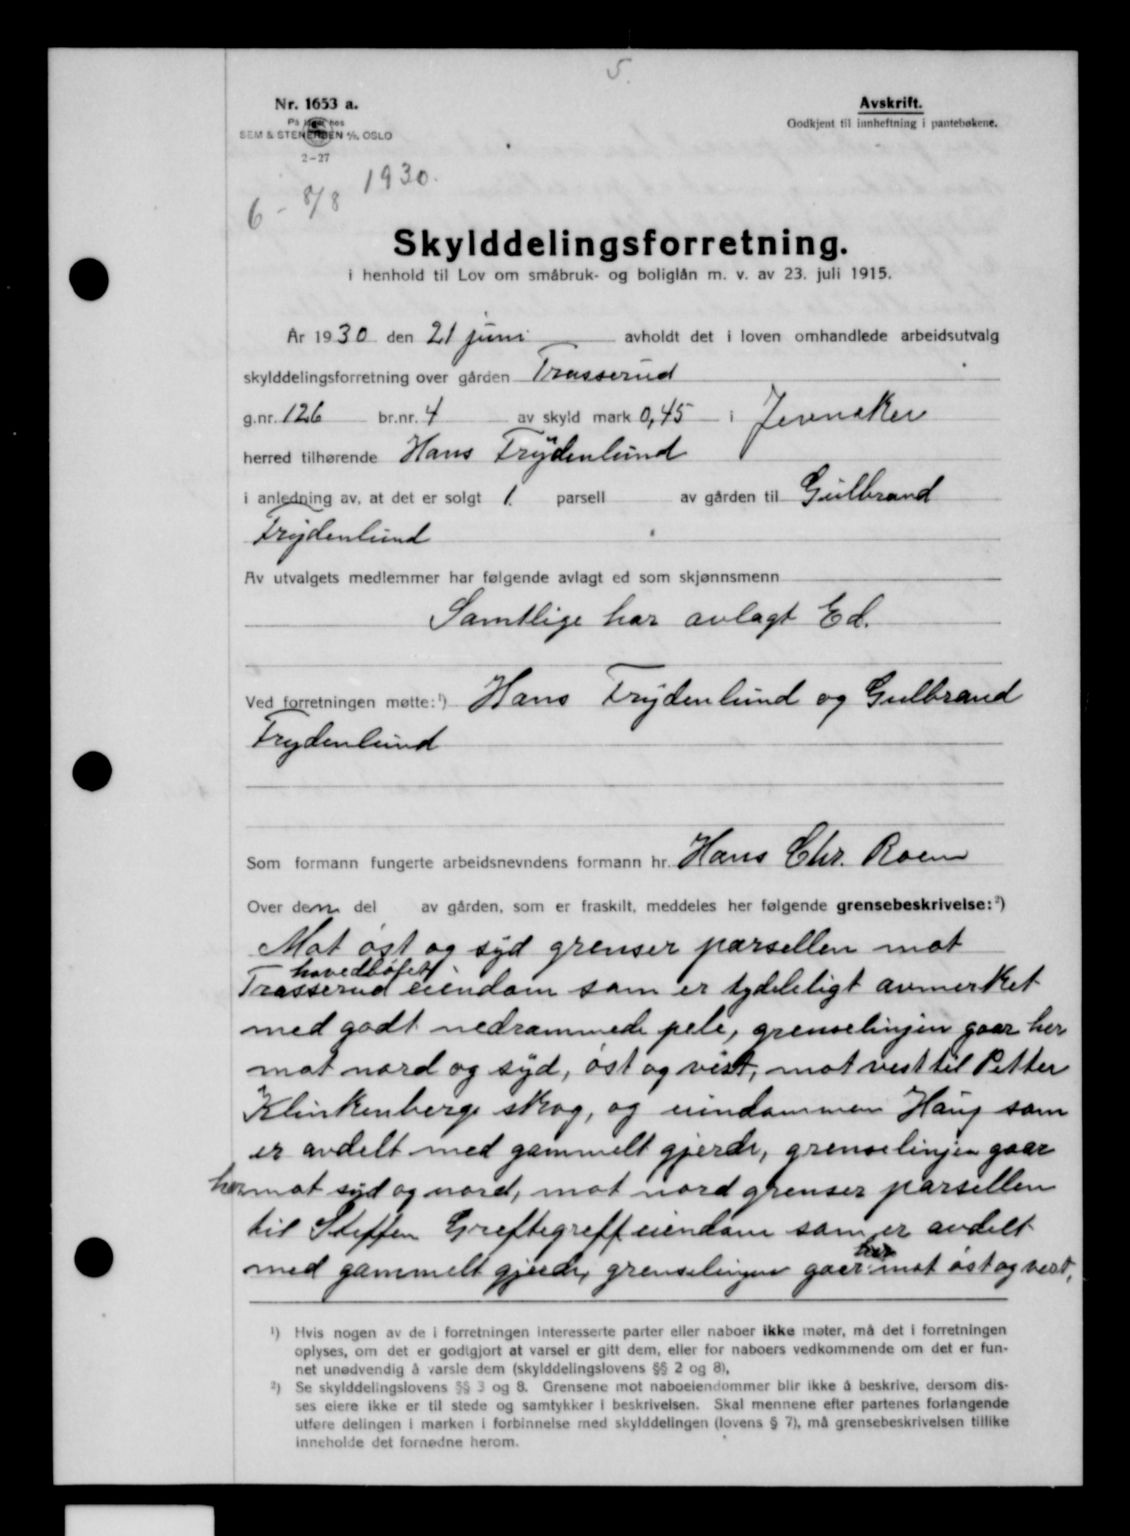 5.
Nr. 1653 a.
På lager hos
SEM & STENERSEN A/S, OSLO
2-27
Avskrift.
Godkjent til innheftning i pantebøkene.
6 - 8/8 1930.
Skylddelingsforretning.
i henhold til Lov om småbruk- og boliglån m. v. av 23. juli 1915.
År 1930 den 21 juni avholdt det i loven omhandlede arbeidsutvalg
skylddelingsforretning over gården Trasserud
g.nr. 126 br.nr. 4 av skyld mark 0,45 i Jevnaker
herred tilhørende Hans Frydenlund
i anledning av, at det er solgt 1. parsell av gården til Gulbrand
Frydenlund
Av utvalgets medlemmer har følgende avlagt ed som skjønnsmenn
Samtlige har avlagt Ed.
Ved forretningen møtte: ¹) Hans Frydenlund og Gulbrand
Frydenlund
Som formann fungerte arbeidsnevndens formann hr. Hans Chr. Roen
Over den del av gården, som er fraskilt, meddeles her følgende grensebeskrivelse: ²)
Mot øst og syd grenser parsellen mot
hovedbølet
Trasserud eiendom som er tydeligt avmerket
med godt nedrammede pele, grenselinjen gaar her
mot nord og syd, øst og vest, mot vest til Petter
Klinkenbergs skog, og eiendommen Haug som
er avdelt med gammelt gjerde, grenselinjen gaar
her mot syd og nord, mot nord grenser parsellen
til Steffen Greftegreff eiendom som er avdelt
med gammelt gjerde, grenselinjen gaar her mot øst og vest,
¹) Hvis nogen av de i forretningen interesserte parter eller naboer ikke møter, må det i forretningen
oplyses, om det er godtgjort at varsel er gitt dem, eller for naboers vedkommende om det er fun-
net unødvendig å varsle dem (skylddelingslovens §§ 2 og 8).
²) Se skylddelingslovens §§ 3 og 8. Grensene mot naboeiendommer blir ikke å beskrive, dersom dis-
ses eiere ikke er til stede og samtykker i beskrivelsen. Skal mennene efter partenes forlangende
utføre delingen i marken i forbinnelse med skylddelingen (lovens § 7), må grensebeskrivelsen tillike
inneholde det fornødne herom.